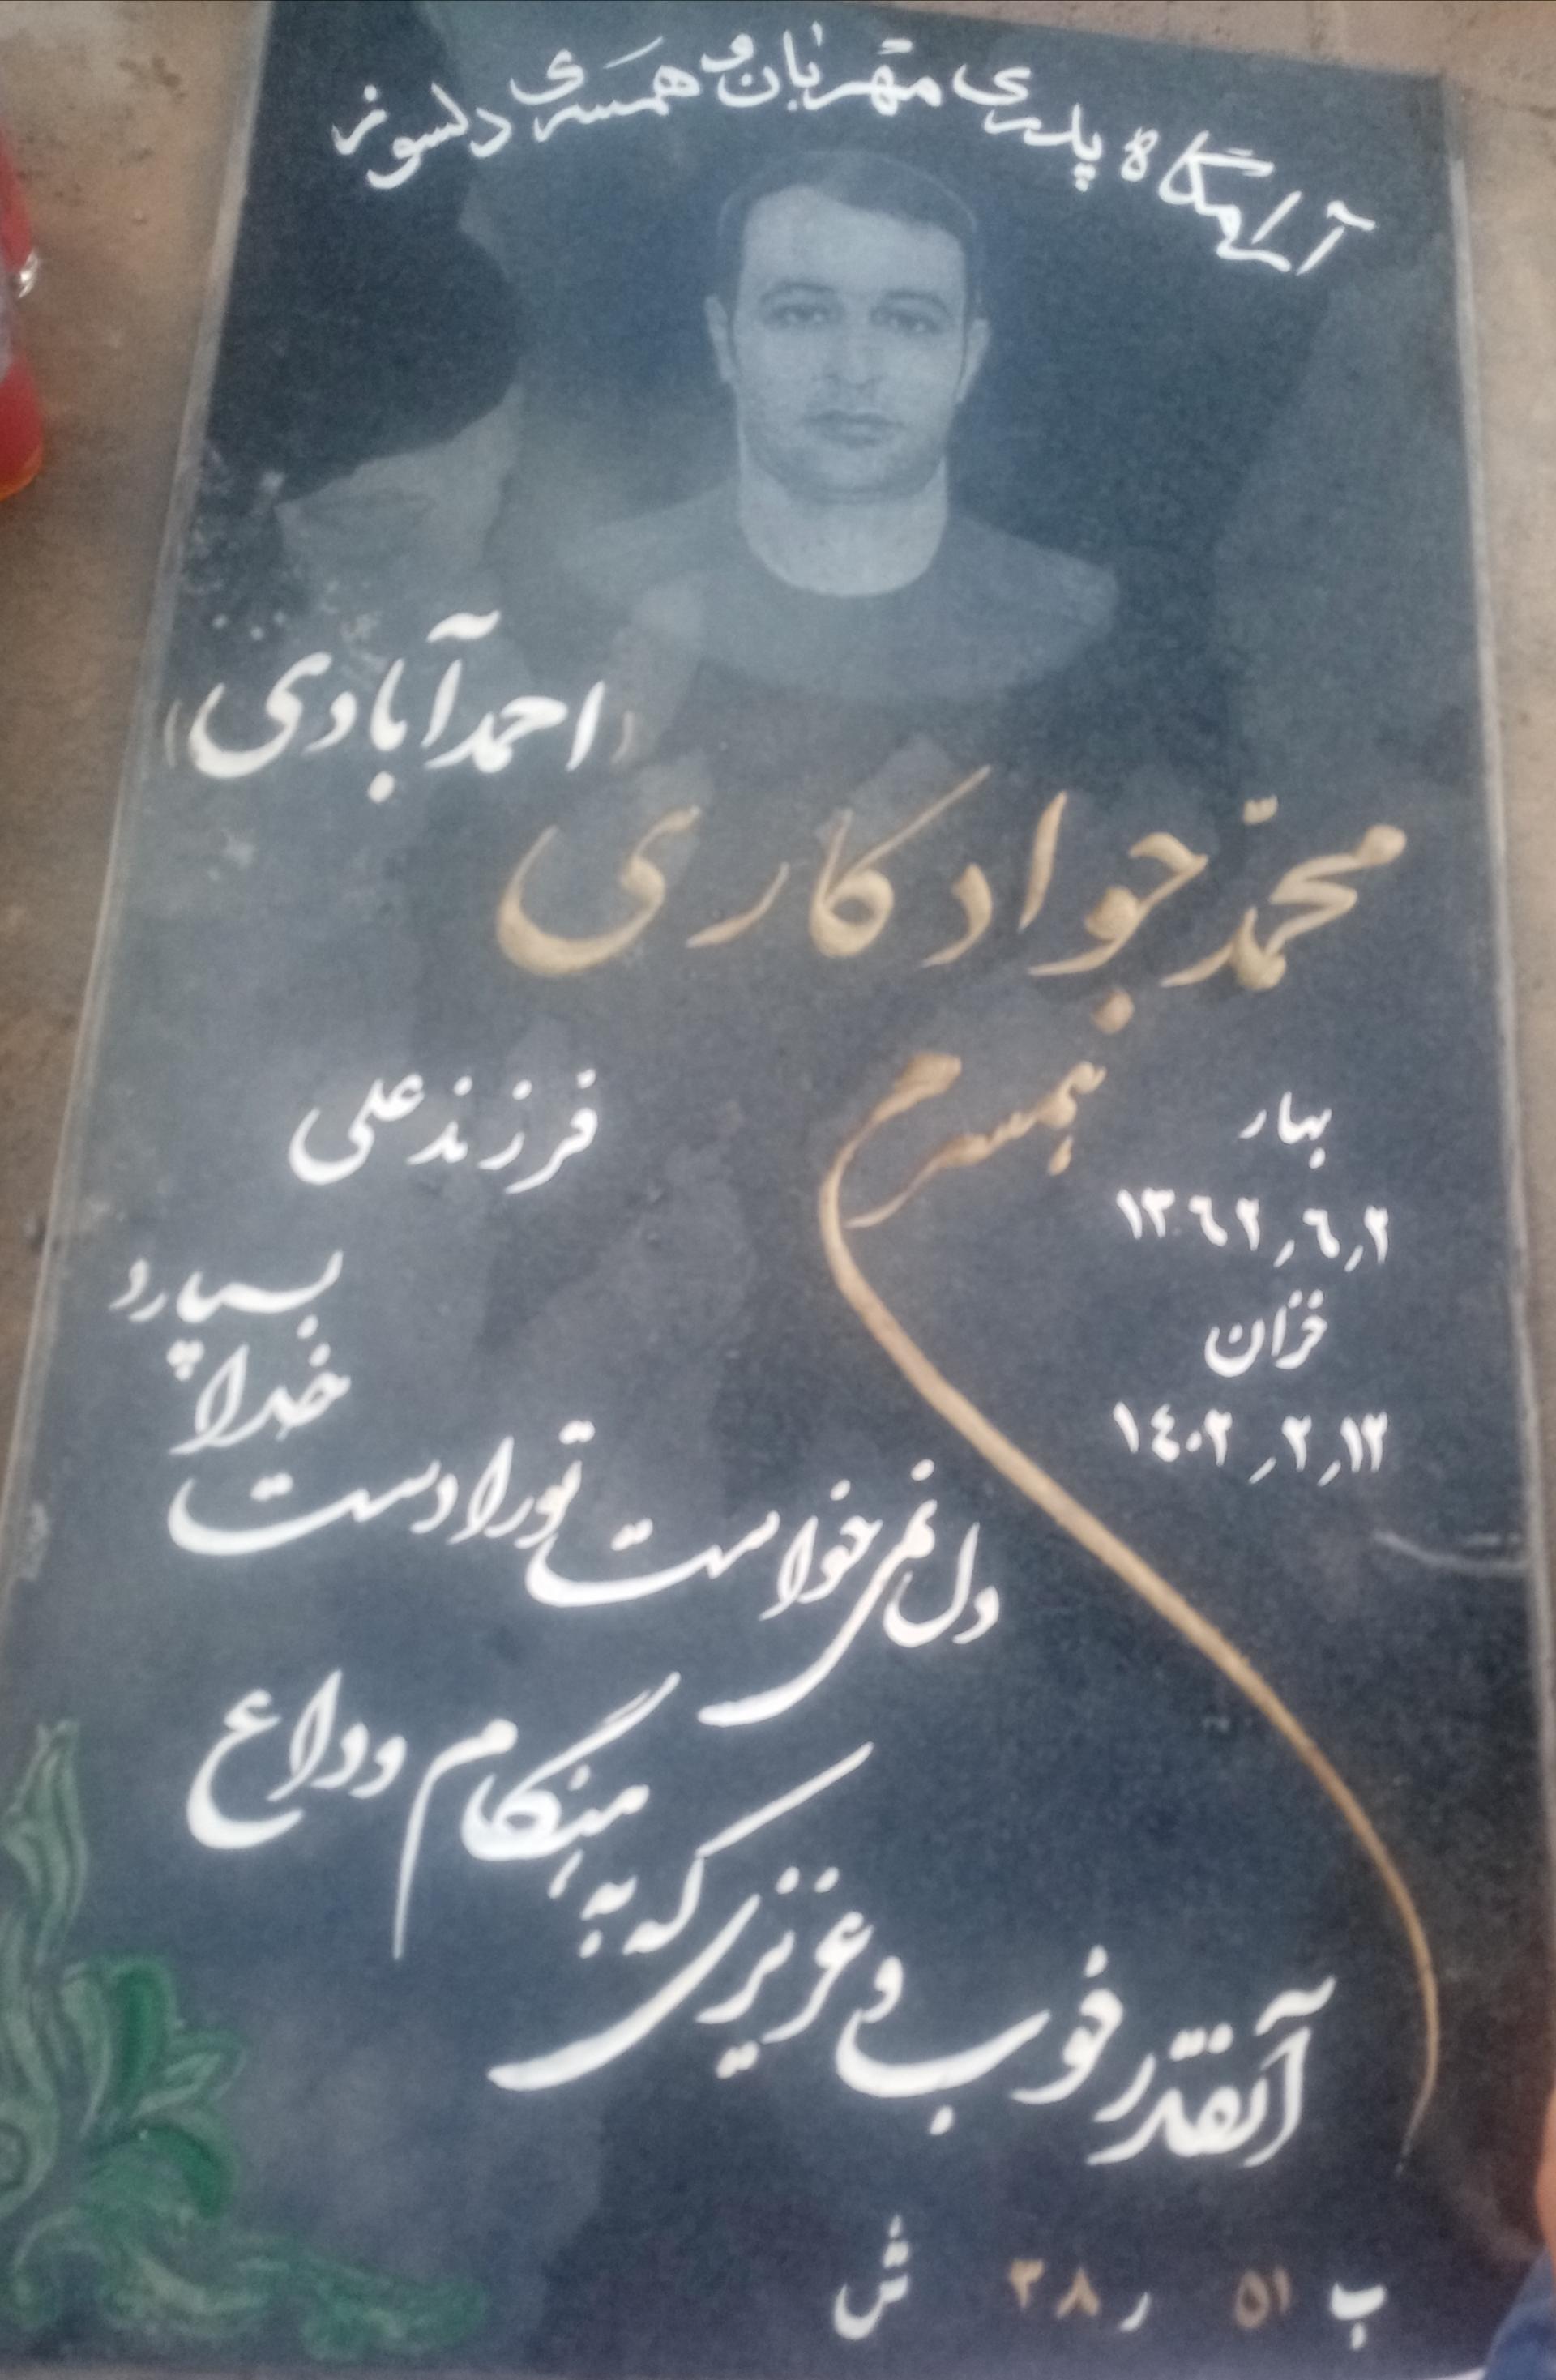 آرامگاه پدری مهربان و همسری دلسوز
(احمدآبادی)
محمّد جواد کاری
همسرم
فرزند علی
بهار
۱۳۶۲٫۶٫۲
خزان
۱۴۰۲٫۲٫۱۲
آنقدر خوب و عزیزی که به هنگام وداع
دل نمی خواست تو را دست خدا بسپارد
ب ۵۱ ر ۳۸ ش